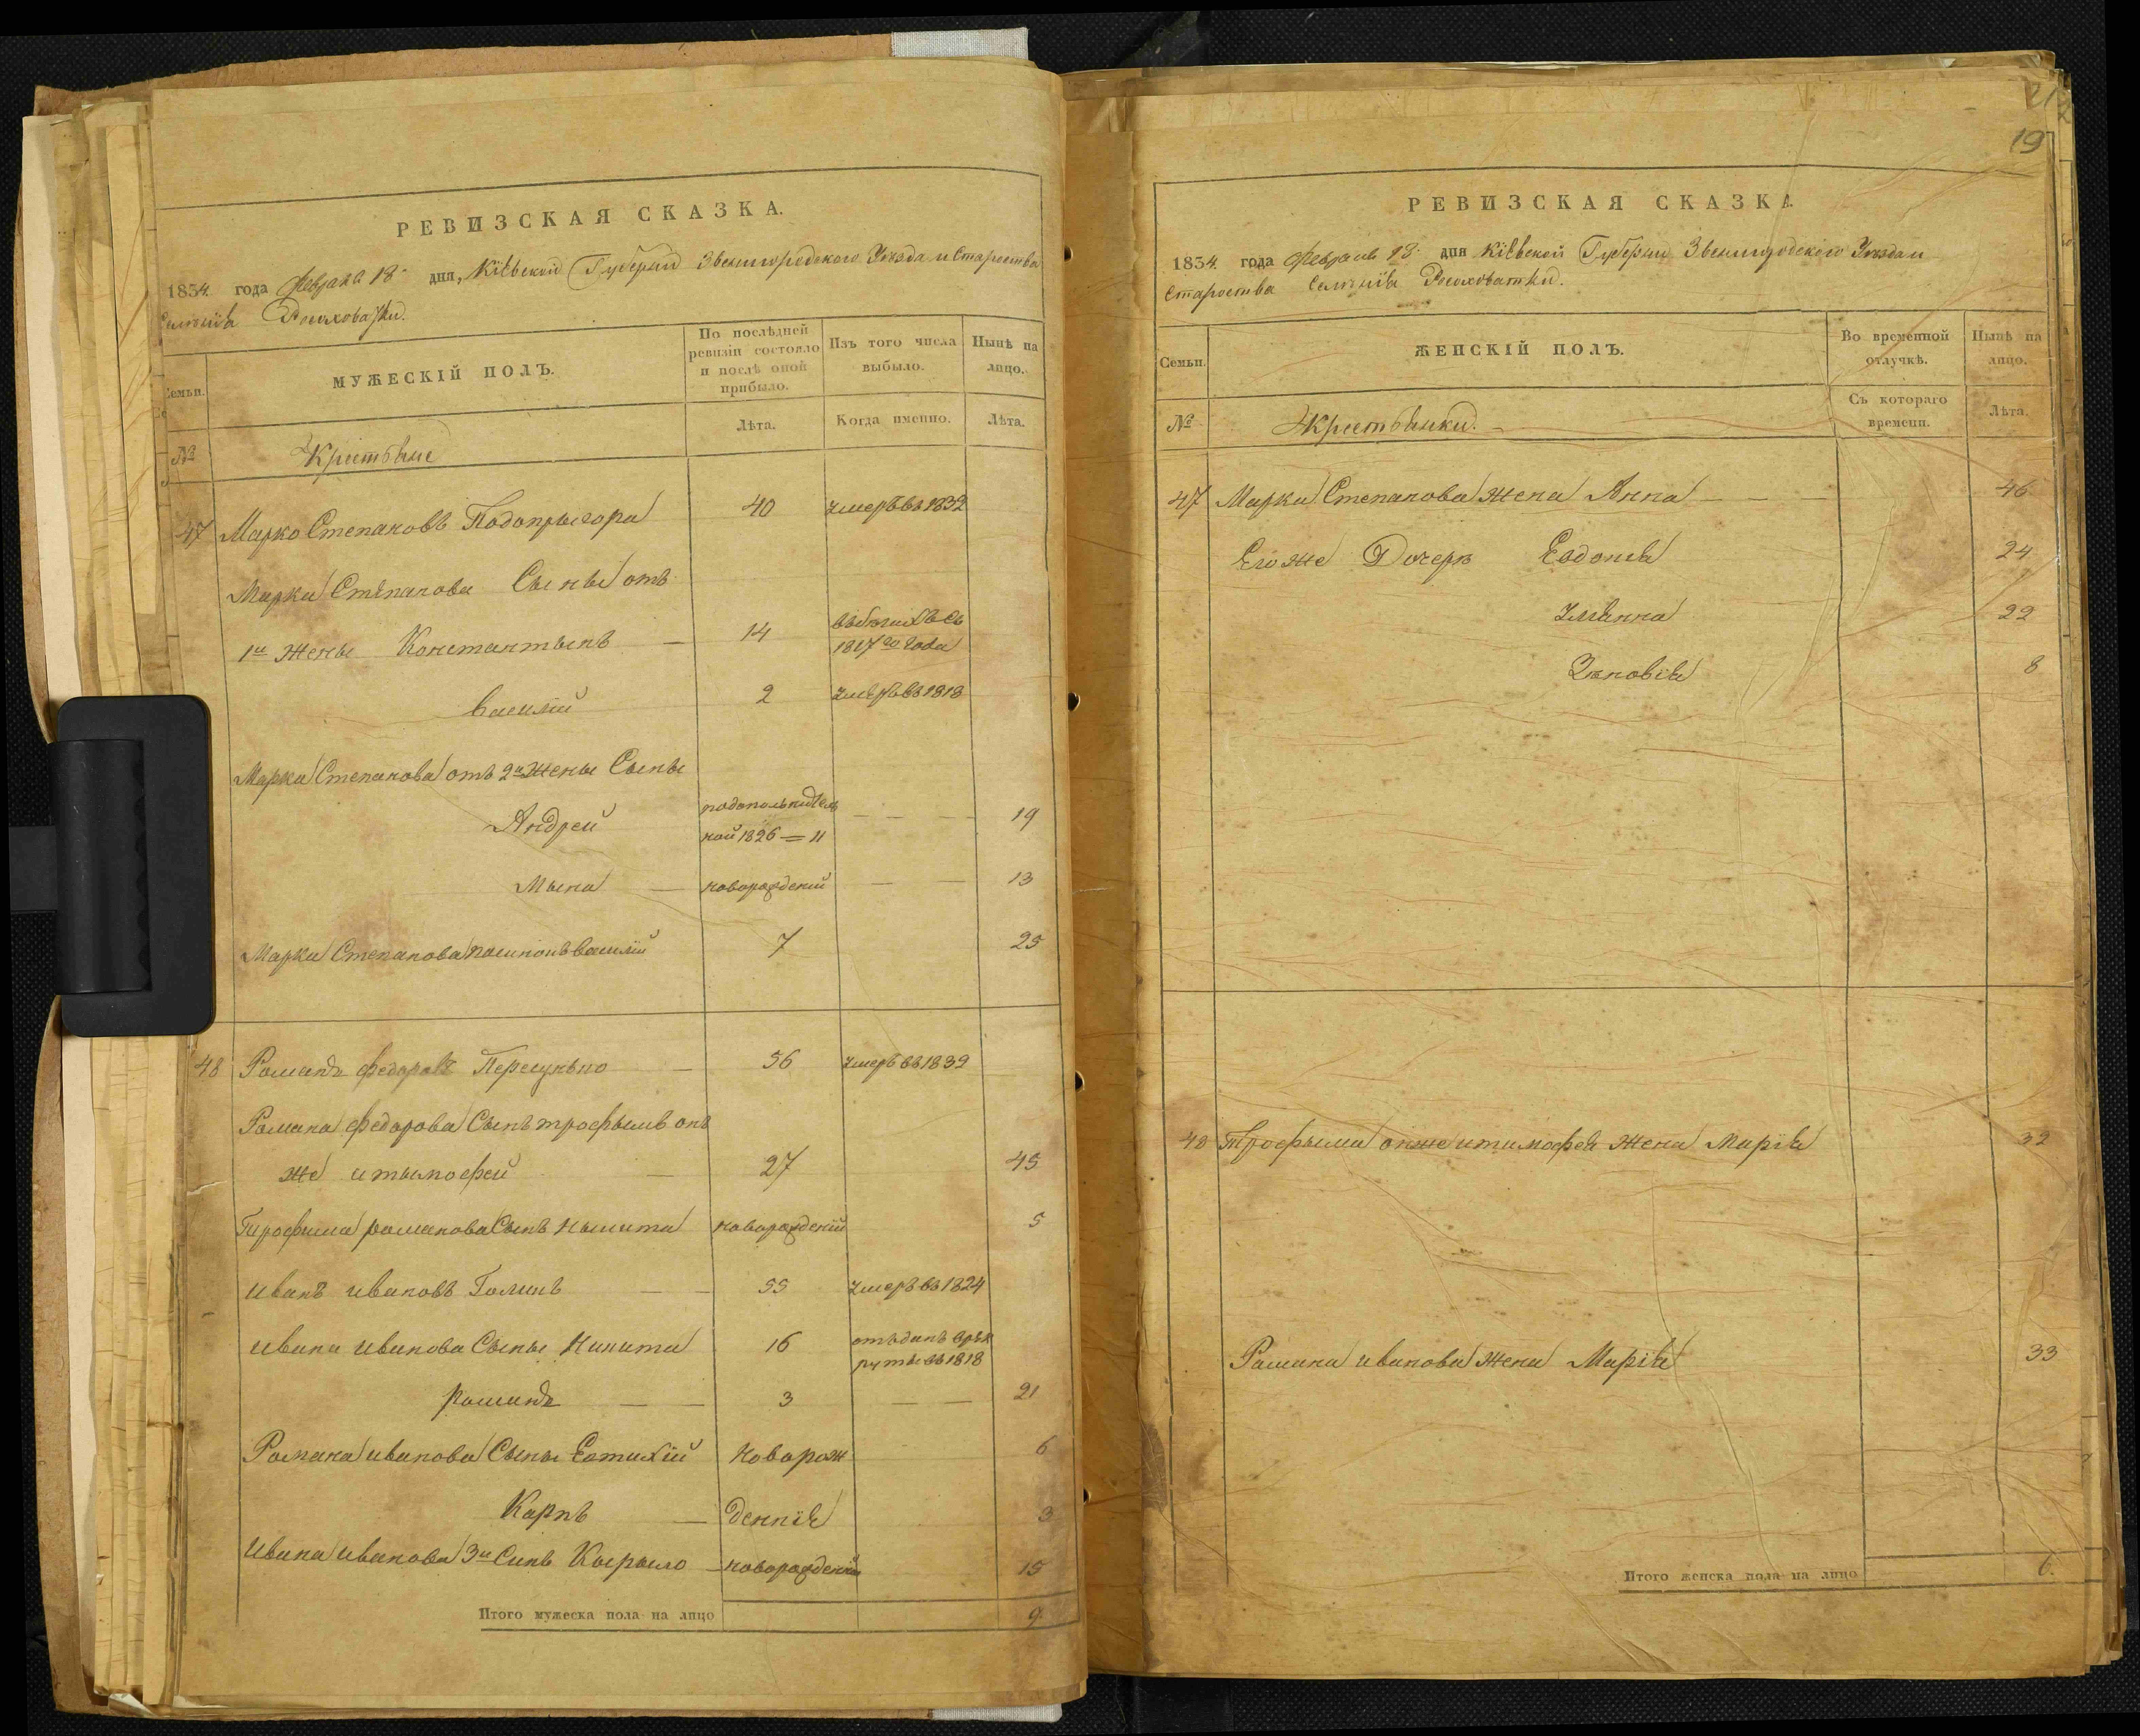 РЕВИЗСКАЯ СКАЗКА.
1834 года февраля 18 дня, Кіевской Губерніи Звенигородского Уезда и Староства
Селенія Росоховатки.
Семьи.
МУЖЕСКІЙ ПОЛЪ.
По послѣдней ревизіи состояло и послѣ оной прибыло.
Изъ того числа выбыло.
Нынѣ на лицо.
№
Крестьяне
Лѣта.
Когда именно.
Лѣта.
47 Марко Степановъ Подопрыгора 40 умеръ въ 1832
Марка Степанова Сыны отъ
1й жены Константынъ — 14 въ бегахъ съ 1817го года
Василій 2 умеръ въ 1818
Марка Степанова отъ 2й жены Сыны
Андрей ной 1826 — 11 — — — 19
Мына — новорожденій — — 13
Марка Степанова Василій 7 25
48 Романъ Федоровъ — 56 умеръ въ 1832
Романа Федорова Сынъ Трофымъ онъ
же и тымофей — 27 45
Трофима романова Сынъ Никита новорожденій 5
Иванъ Ивановъ Голикъ — — 55 умеръ въ 1824
Ивана Иванова Сыны Никита 16 отъданъ врек руты въ 1818
Романъ — — 3 — — 21
Романа Иванова Сыны Евтихій Новорож 6
Карпъ — деннія 3
Ивана Иванова 3й Синъ Кырыло — новорожденій 15
Итого мужеска пола на лицо 9.
21
19
РЕВИЗСКАЯ СКАЗКА.
1834 года февраля 18 дня Кіевской Губерніи Звенигородского Уезда и
Староства Селенія Росоховатки.
Семьи.
ЖЕНСКІЙ ПОЛЪ.
Во временной отлучкѣ.
Нынѣ на лицо.
№
Крестьянки. —
Съ котораго времени.
Лѣта.
47 Марка Степанова жена Анна — — — 46
Его же Дочери Евдокія 24
Ульянна 22
Зѣновія 8
48 Трофыма онже и тимофея жена Марія 32
Романа Иванова жена Марія 33
Итого женска пола на лицо 6.